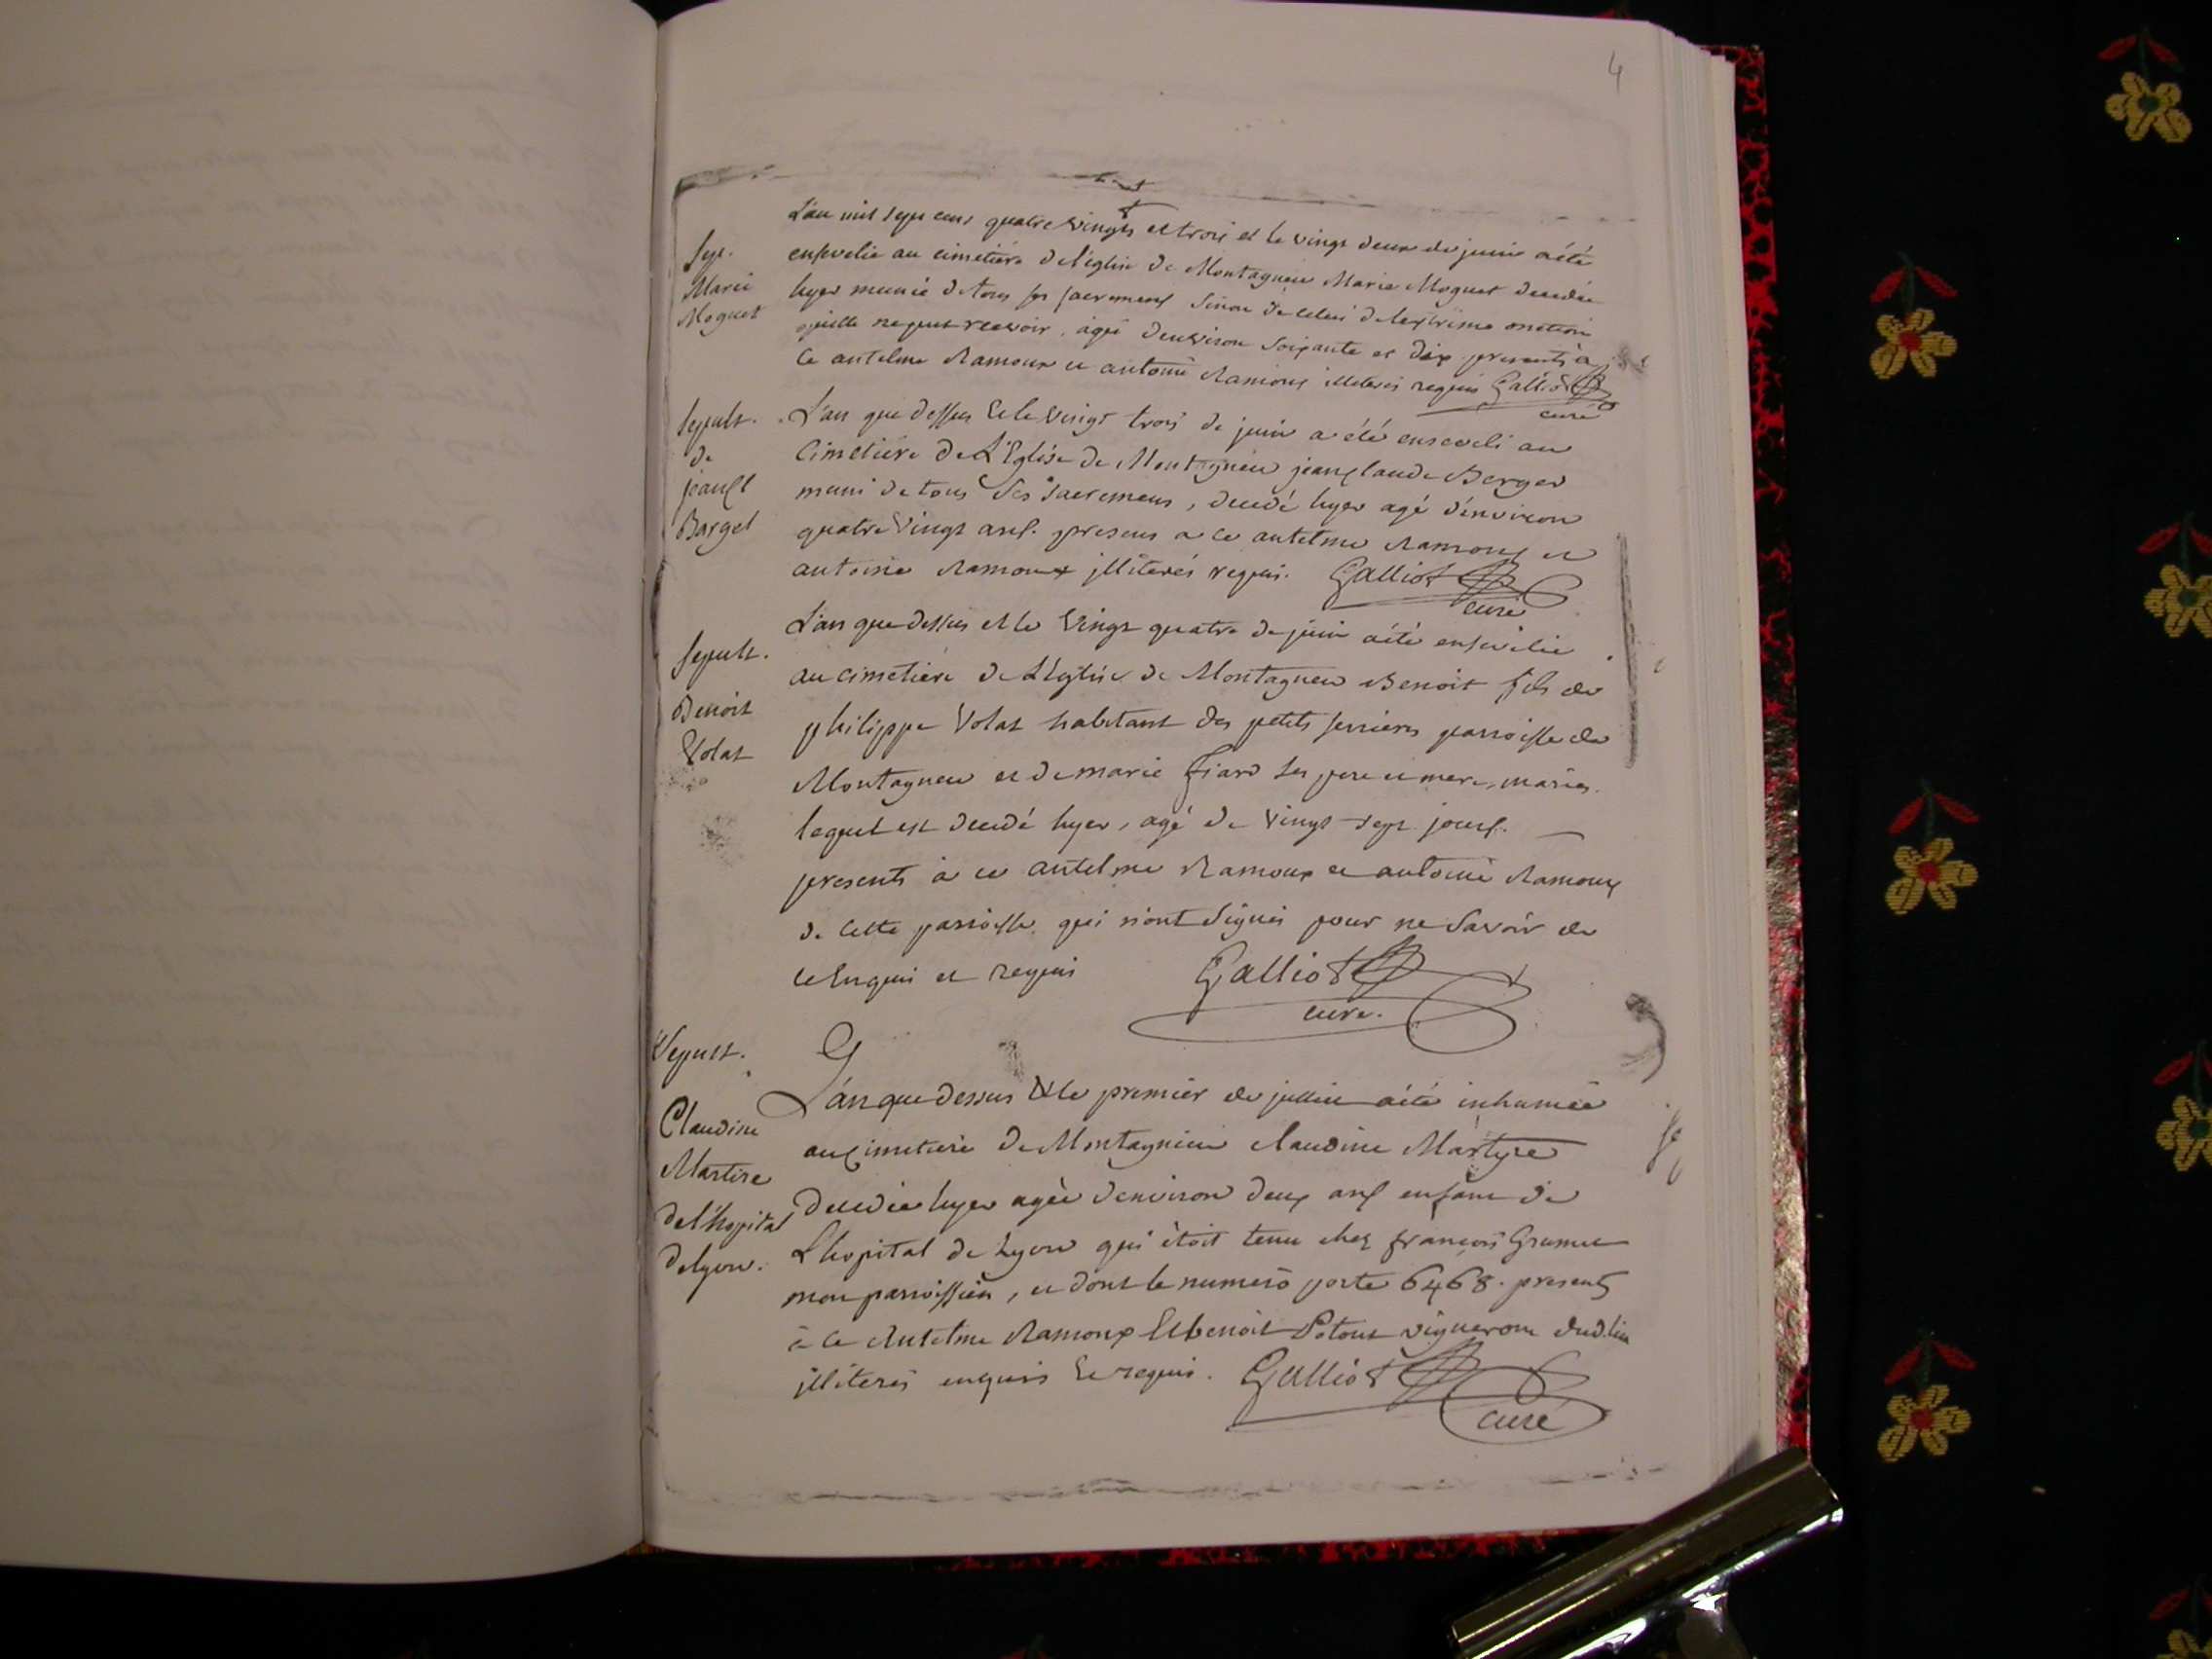 4
Sep.
Marie
Moguet
L'an mil sept cens quatre vingts et trois et le vingt deux de juin a été
ensevelie au cimetière de l'églisé de Montagneu Marie Moguet decedée
hyer munie de tous ses sacremens sinon de celui de l'extrême onction
quelle ne put recevoir, agée denviron soixante et dix presents a
ce antelme Ramoux et antoine Ramoux illiterés requis Galliot
curé
Sepult.
de
jean Cl
Bargel
L'an que dessus et le vingt trois de juin a été enseveli au
Cimetière de L'Eglise de Montagneu jean claude Berger
muni de tous ses sacremens, decedé hyer agé d'environ
quatre vingt ans. presens a ce antelme Ramoux et
antoine Ramoux illiterés requis. Galliot
curé
Sepult.
Benoit
Volat
L'an que dessus et le vingt quatre de juin a été ensevelie
au cimetière de L'église de Montagneu Benoit fils de
philippe Volat habitant des petits parroisse de
Montagneu et de marie Fiard ses pere et mere, mariés.
lequel est decedé hyer, agé de vingt sept jours.
presents à ce antelme Ramoux et antoine Ramoux
de cette parroisse qui n'ont signés pour ne savoir de
ce Enquis et requis Galliot
curé.
Sepult.
Claudine
Martire
de l'hopital
de lyon.
L'an que dessus et le premier de juillet a été inhumée
au cimetiere de Montagnieu Claudine Martyre
decedée hyer agée d'environ deux ans enfant de
L'hopital de Lyon qui étoit tenu chez françois
mon parroissien, et dont le numero porte 6468. presents
à ce Antelme Ramoux et benoit vigneron dud. lieu
illiterés enquis et requis. Galliot
curé